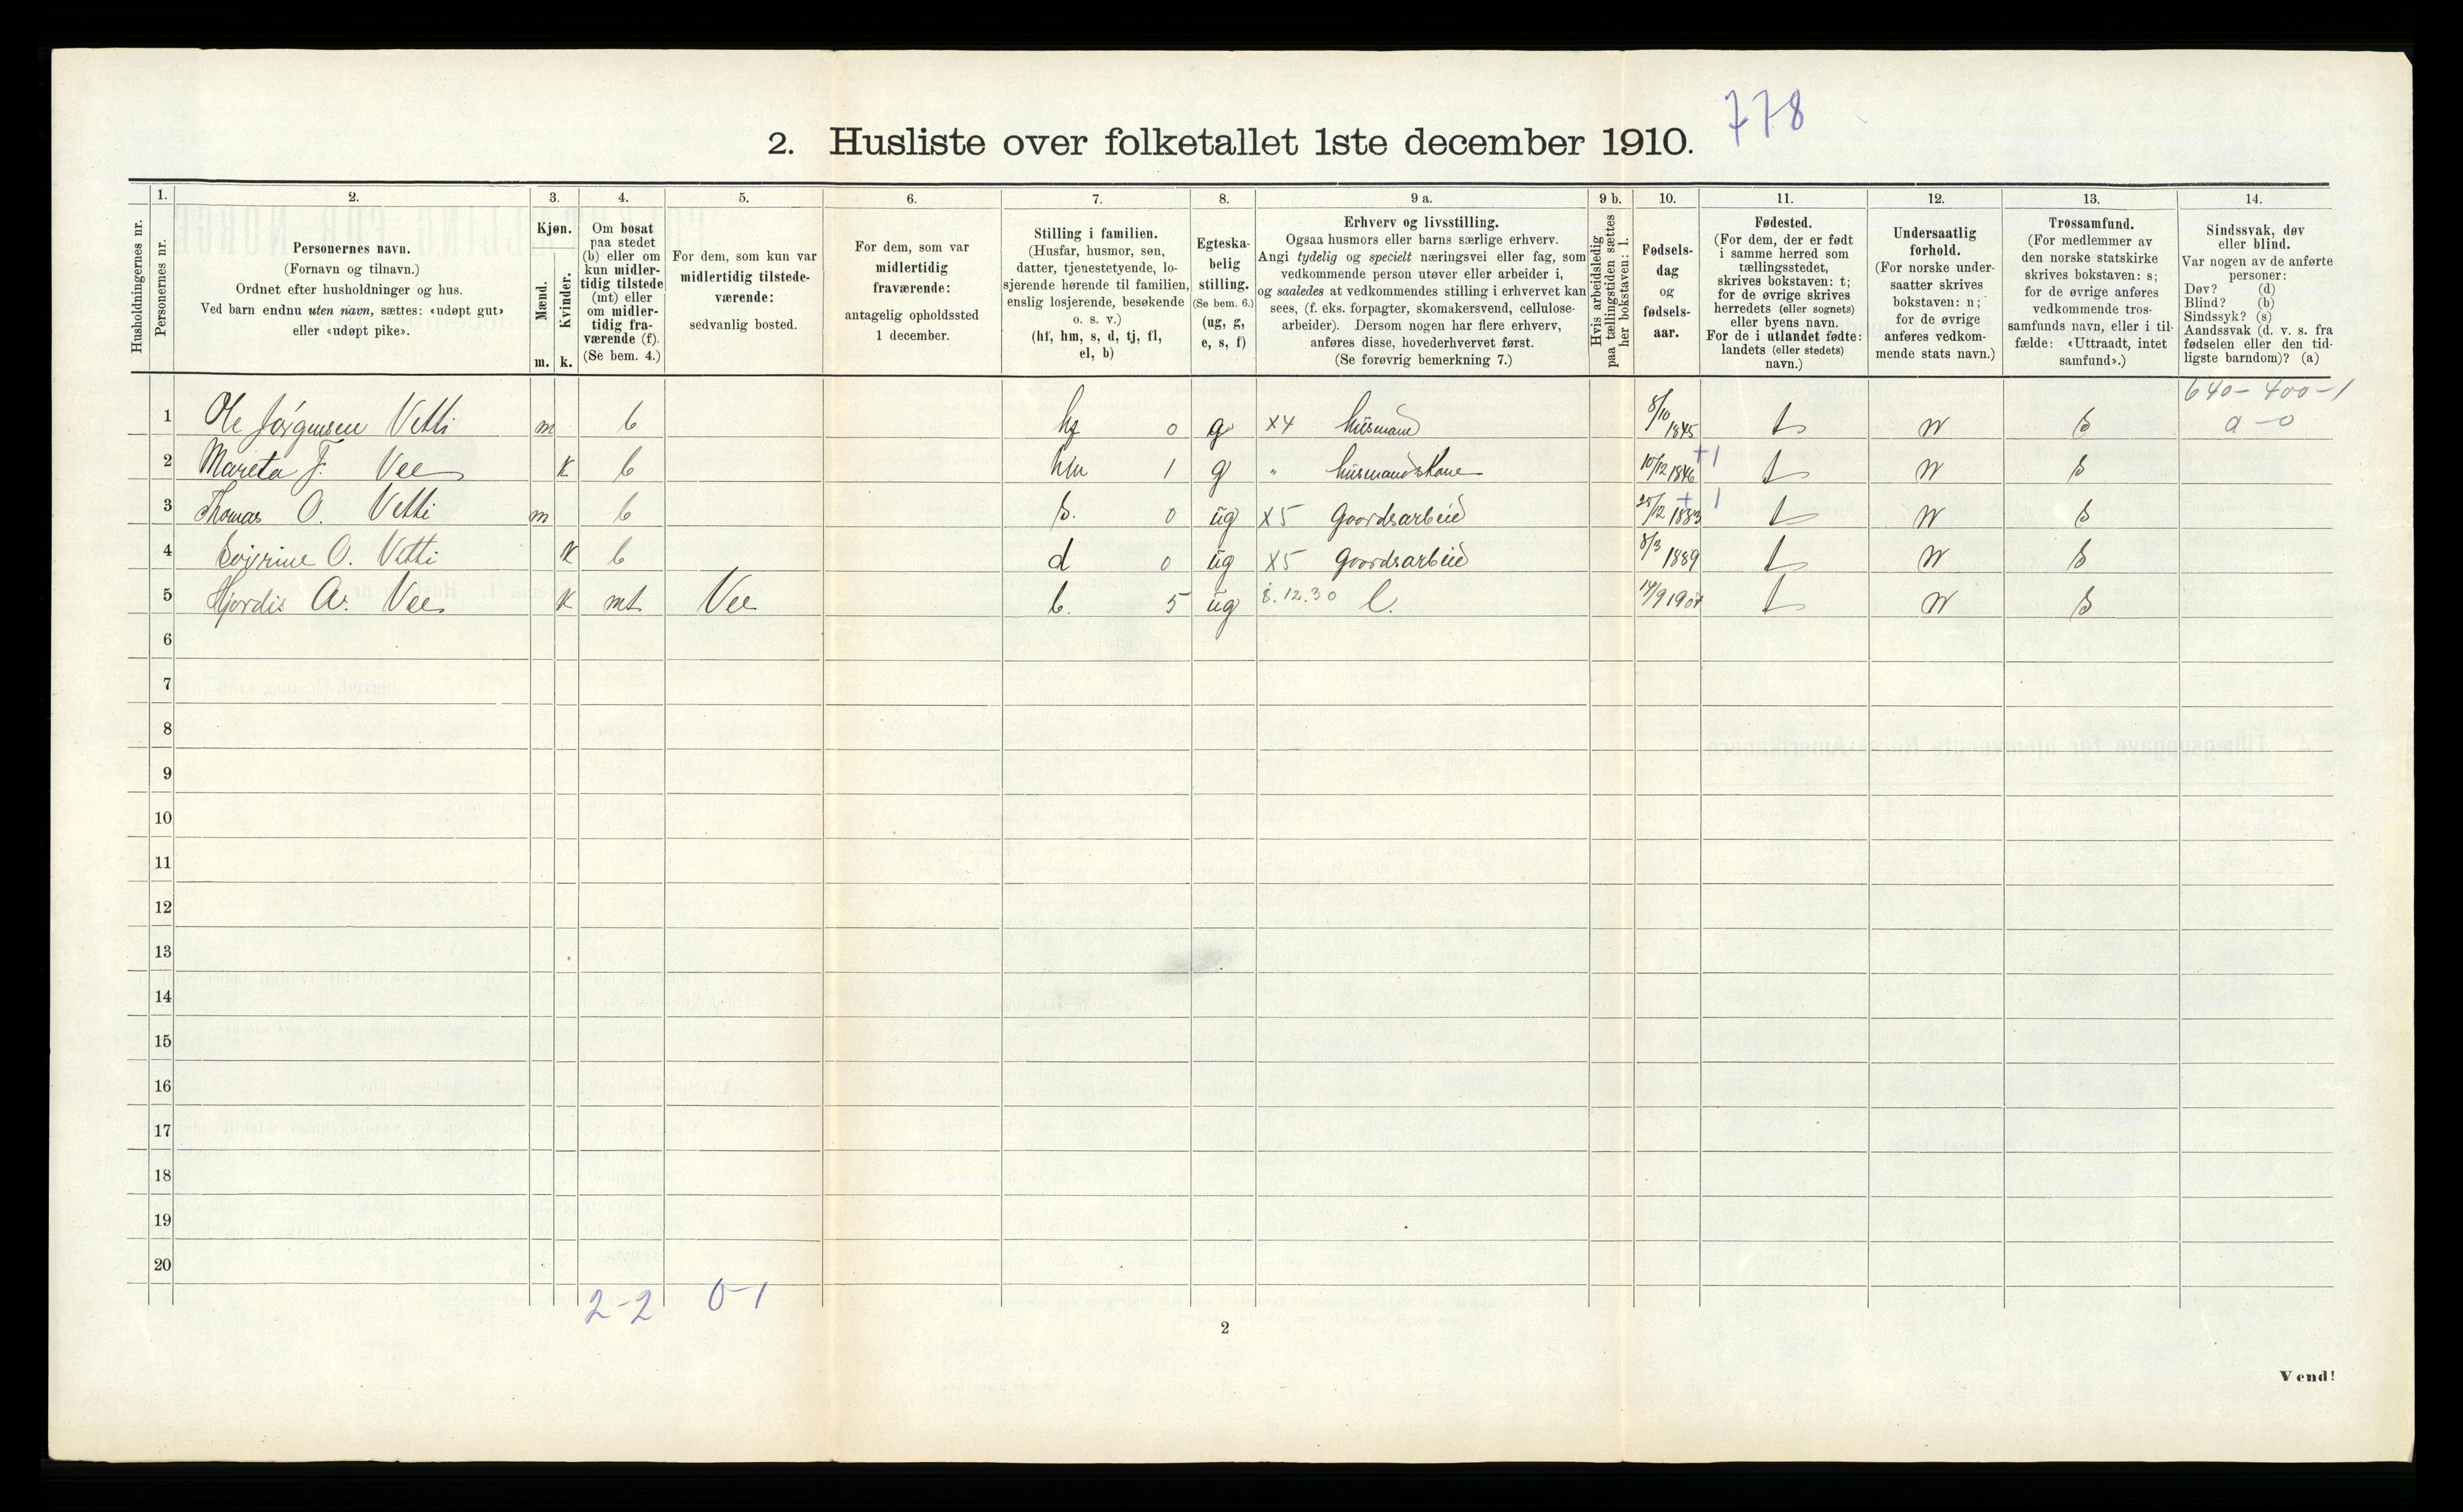 778
2. Husliste over folketallet 1ste december 1910.
Husholdningernes nr.
1.
Personernes nr.
2.
Personernes navn.
(Fornavn og tilnavn.)
Ordnet efter husholdninger og hus.
Ved barn endnu uten navn, sættes: «udøpt gut»
eller «udøpt pike».
3.
Kjøn.
Mænd.
m.
Kvinder.
k.
4.
Om bosat
paa stedet
(b) eller om
kun midler-
tidig tilstede
(mt) eller
om midler-
tidig fra-
værende (f).
(Se bem. 4.)
5.
For dem, som kun var
midlertidig tilstede-
værende:
sedvanlig bosted.
6.
For dem, som var
midlertidig
fraværende:
antagelig opholdssted
1 december.
7.
Stilling i familien.
(Husfar, husmor, søn,
datter, tjenestetyende, lo-
sjerende hørende til familien,
enslig losjerende, besøkende
o. s. v.)
(hf, hm, s, d, tj, fl,
el, b)
8.
Egteska-
belig
stilling.
(Se bem. 6.)
(ug, g,
e, s, f)
9 a.
Erhverv og livsstilling.
Ogsaa husmors eller barns særlige erhverv.
Angi tydelig og specielt næringsvei eller fag, som
vedkommende person utøver eller arbeider i,
og saaledes at vedkommendes stilling i erhvervet kan
sees, (f. eks. forpagter, skomakersvend, cellulose-
arbeider). Dersom nogen har flere erhverv,
anføres disse, hovederhvervet først.
(Se forøvrig bemerkning 7.)
9 b.
Hvis arbeidsledig
paa tællingstiden sættes
her bokstaven: l.
10.
Fødsels-
dag
og
fødsels-
aar.
11.
Fødested.
(For dem, der er født
i samme herred som
tællingsstedet,
skrives bokstaven: t;
for de øvrige skrives
herredets (eller sognets)
eller byens navn.
For de i utlandet fødte:
landets (eller stedets)
navn.)
12.
Undersaatlig
forhold.
(For norske under-
saatter skrives
bokstaven: n;
for de øvrige
anføres vedkom-
mende stats navn.)
13.
Trossamfund.
(For medlemmer av
den norske statskirke
skrives bokstaven: s;
for de øvrige anføres
vedkommende tros-
samfunds navn, eller i til-
fælde: «Uttraadt, intet
samfund».)
14.
Sindssvak, døv
eller blind.
Var nogen av de anførte
personer:
Døv? (d)
Blind? (b)
Sindssyk? (s)
Aandssvak (d. v. s. fra
fødselen eller den tid-
ligste barndom)? (a)
640-400-1
1 Ole Jørgensen Vetti m b hf 0 g X4 husmand 8/10 1845 t n s a-0
2 Mareta T. Vee k b hm 1 g " husmandskone 10/12 1846 +1 t n s
3 Thomas O. Vetti m b s. 0 ug X5 Goordsarbeid 25/12 1883 + 1 t n s
4 O. Vetti k b d 0 ug X5 Goordsarbeid 8/3 1889 t n s
5 Hjordis A. Vee k mt Vee b. 5 ug 8.12.30 14/9 1907 t n s
6
7
8
9
10
11
12
13
14
15
16
17
18
19
20
2-2 0-1
2
Vend!